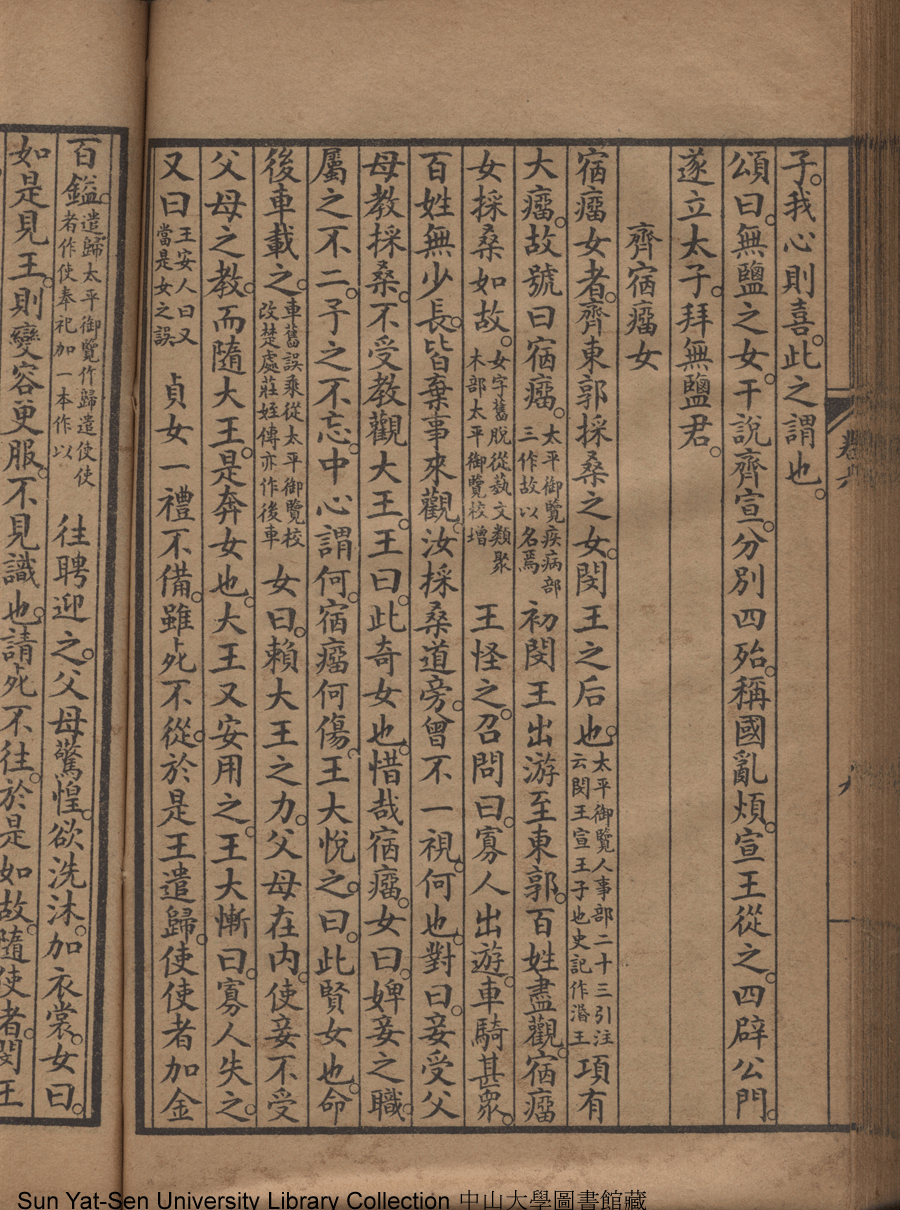 子。我心則喜。此之謂也。
頌曰。無鹽之女。干說齊宣。分別四殆。稱國亂煩。宣王從之。四辟公門。
遂立太子。拜無鹽君。
齊宿瘤女
宿瘤女者。齊東郭採桑之女。閔王之后也。太平御覽人事部二十三引注云閔王宣王子也史記作湣王項有
大瘤。故號曰宿瘤。太平御覽疾病部三作故以名焉初閔王出游至東郭。百姓盡觀。宿瘤
女採桑如故。女字舊脫從蓺文類聚木部太平御覽校增王怪之。召問曰。寡人出遊。車騎甚衆。
百姓無少長。皆棄事來觀。汝採桑道旁。曾不一視。何也。對曰。妾受父
母教採桑。不受教觀大王。王曰。此奇女也。惜哉宿瘤。女曰。婢妾之職。
屬之不二。予之不忘。中心謂何。宿瘤何傷。王大悅之。曰。此賢女也。命
後車載之。車舊誤乘從太平御覽校改楚處莊姪傳亦作後車女曰。賴大王之力。父母在內。使妾不受
父母之教。而隨大王。是奔女也。大王又安用之。王大慚。曰。寡人失之。
又曰王安人曰又當是女之誤貞女一禮不備。雖死不從。於是王遣歸。使使者加金
百鎰。遣歸太平御覽作歸遣使使者作使奉祀加一本作以往聘迎之。父母驚惶。欲洗沐。加衣裳。女曰。
如是見王。則變容更服。不見識也。請死不往。於是如故。隨使者。閔王
Sun Yat-Sen University Library Collection 中山大學圖書館藏